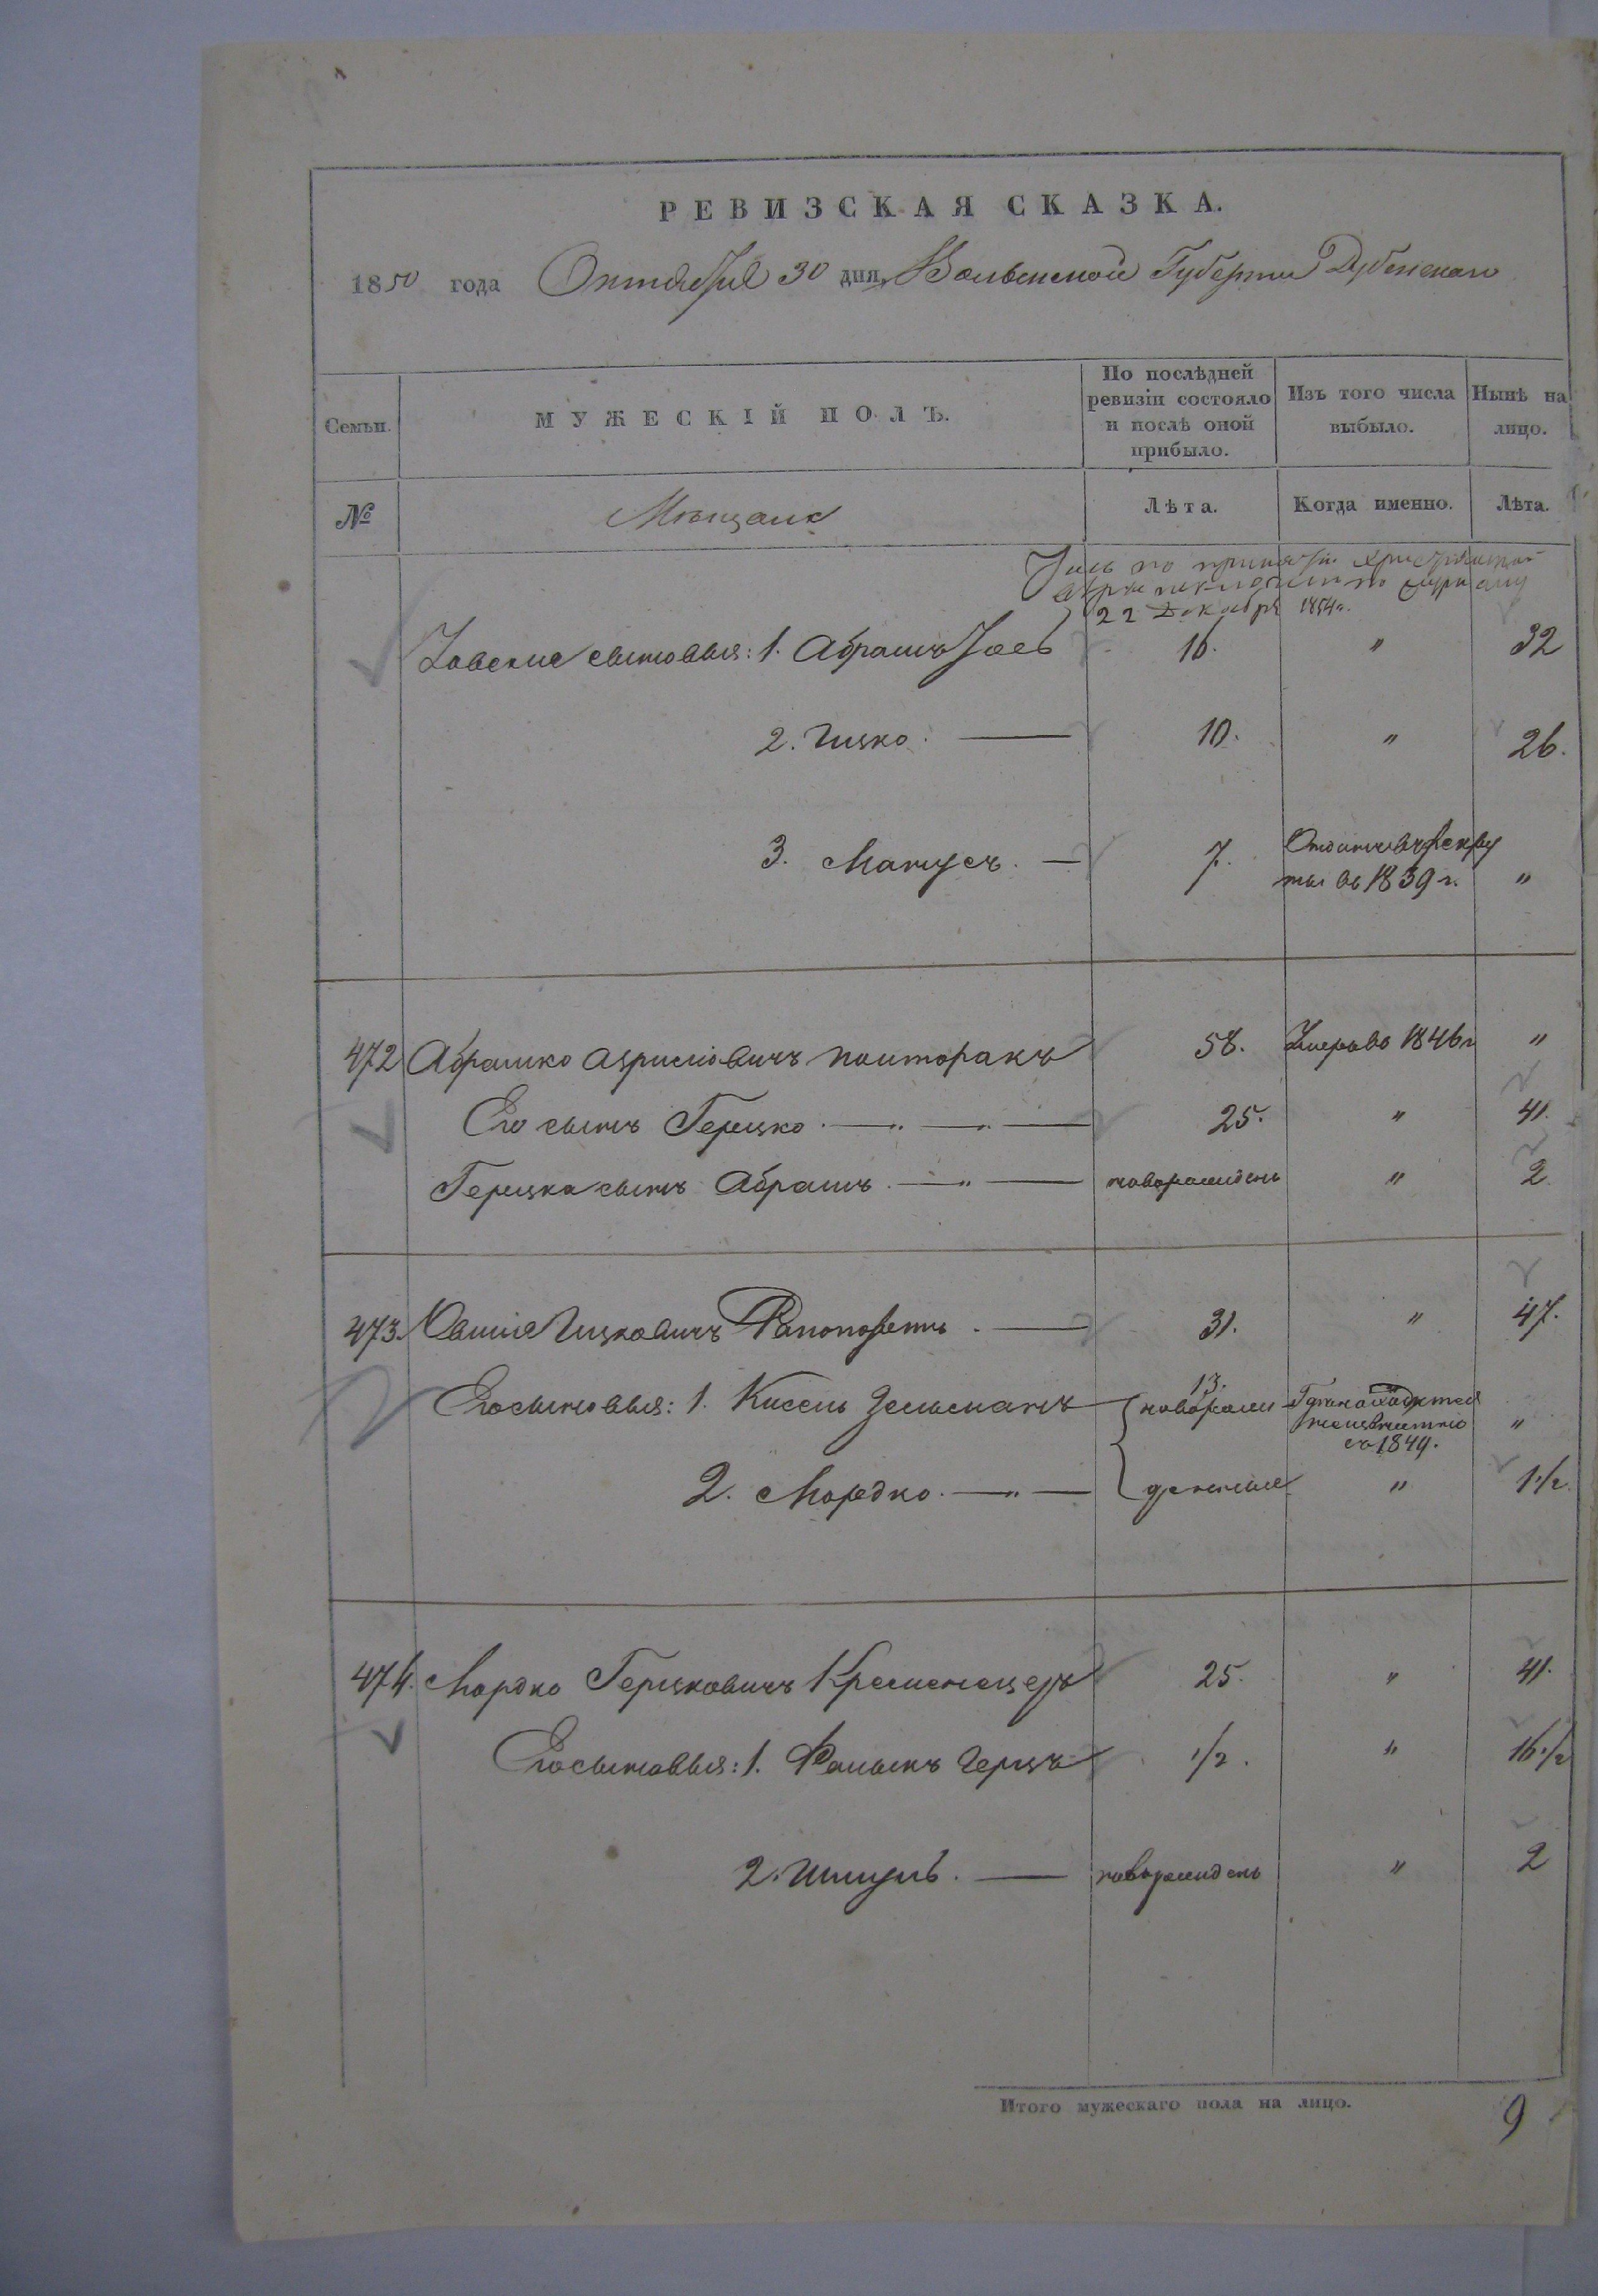 РЕВИЗСКАЯ СКАЗКА.
1850 года Октября 30 дня, Волынской Губернии Дубенскаго
Семьи.
МУЖЕСКІЙ ПОЛЪ.
По послѣдней
ревизіи состояло
и послѣ оной
прибыло.
Изъ того числа
выбыло.
Нынѣ на
лицо.
№
Мѣщане
Лѣта.
Когда именно.
Лѣта.
по принятіи христіанской
22 Декабря 1854 г.
сыновья: 1. Абрамъ 16. " 32
2. Ицко. — 10. " 26.
3. Матусъ. — 7. Отданъ въ рекру
ты въ 1839 г. "
472 Абрамко Поиторакъ 58. Умеръ въ 1846 г "
Его сынъ Герцко. — " — " — 25. " 41.
Герцка сынъ Абрамъ. — " — новорожденъ " 2
473. Овшія Ицковичъ Рапопортъ. — 31. " 47.
Его сыновья: 1. Кисель Зельманъ
13.
новорож
неизвѣстно
съ 1844. "
2. Мордко. — " — денные " 1 1/2.
474. Мордко Герцковичъ Кременецеръ 25. " 41.
Его сыновья: 1. Герцъ 1/2. " 16 1/2
2. Шмуль. — новорожденъ " 2
Итого мужескаго пола на лицо. 9